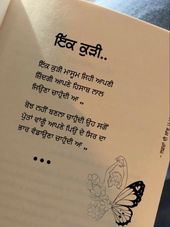 ਇੱਕ ਕੁੜੀ..
ਇੱਕ ਕੁੜੀ ਮਾਸੂਮ ਜਿਹੀ ਆਪਣੀ
ਜ਼ਿੰਦਗੀ ਆਪਣੇ ਹਿਸਾਬ ਨਾਲ
ਜਿਉਣਾ ਚਾਹੁੰਦੀ ਆ ,,
ਬੋਝ ਨਹੀਂ ਬਣਨਾ ਚਾਹੁੰਦੀ ਉਹ ਸਗੋਂ
ਪੁੱਤਾਂ ਵਾਂਗੂੰ ਆਪਣੇ ਪਿਓ ਦੇ ਸਿਰ ਦਾ
ਭਾਰ ਵੰਡਾਉਣਾ ਚਾਹੁੰਦੀ ਆ ,,
•••